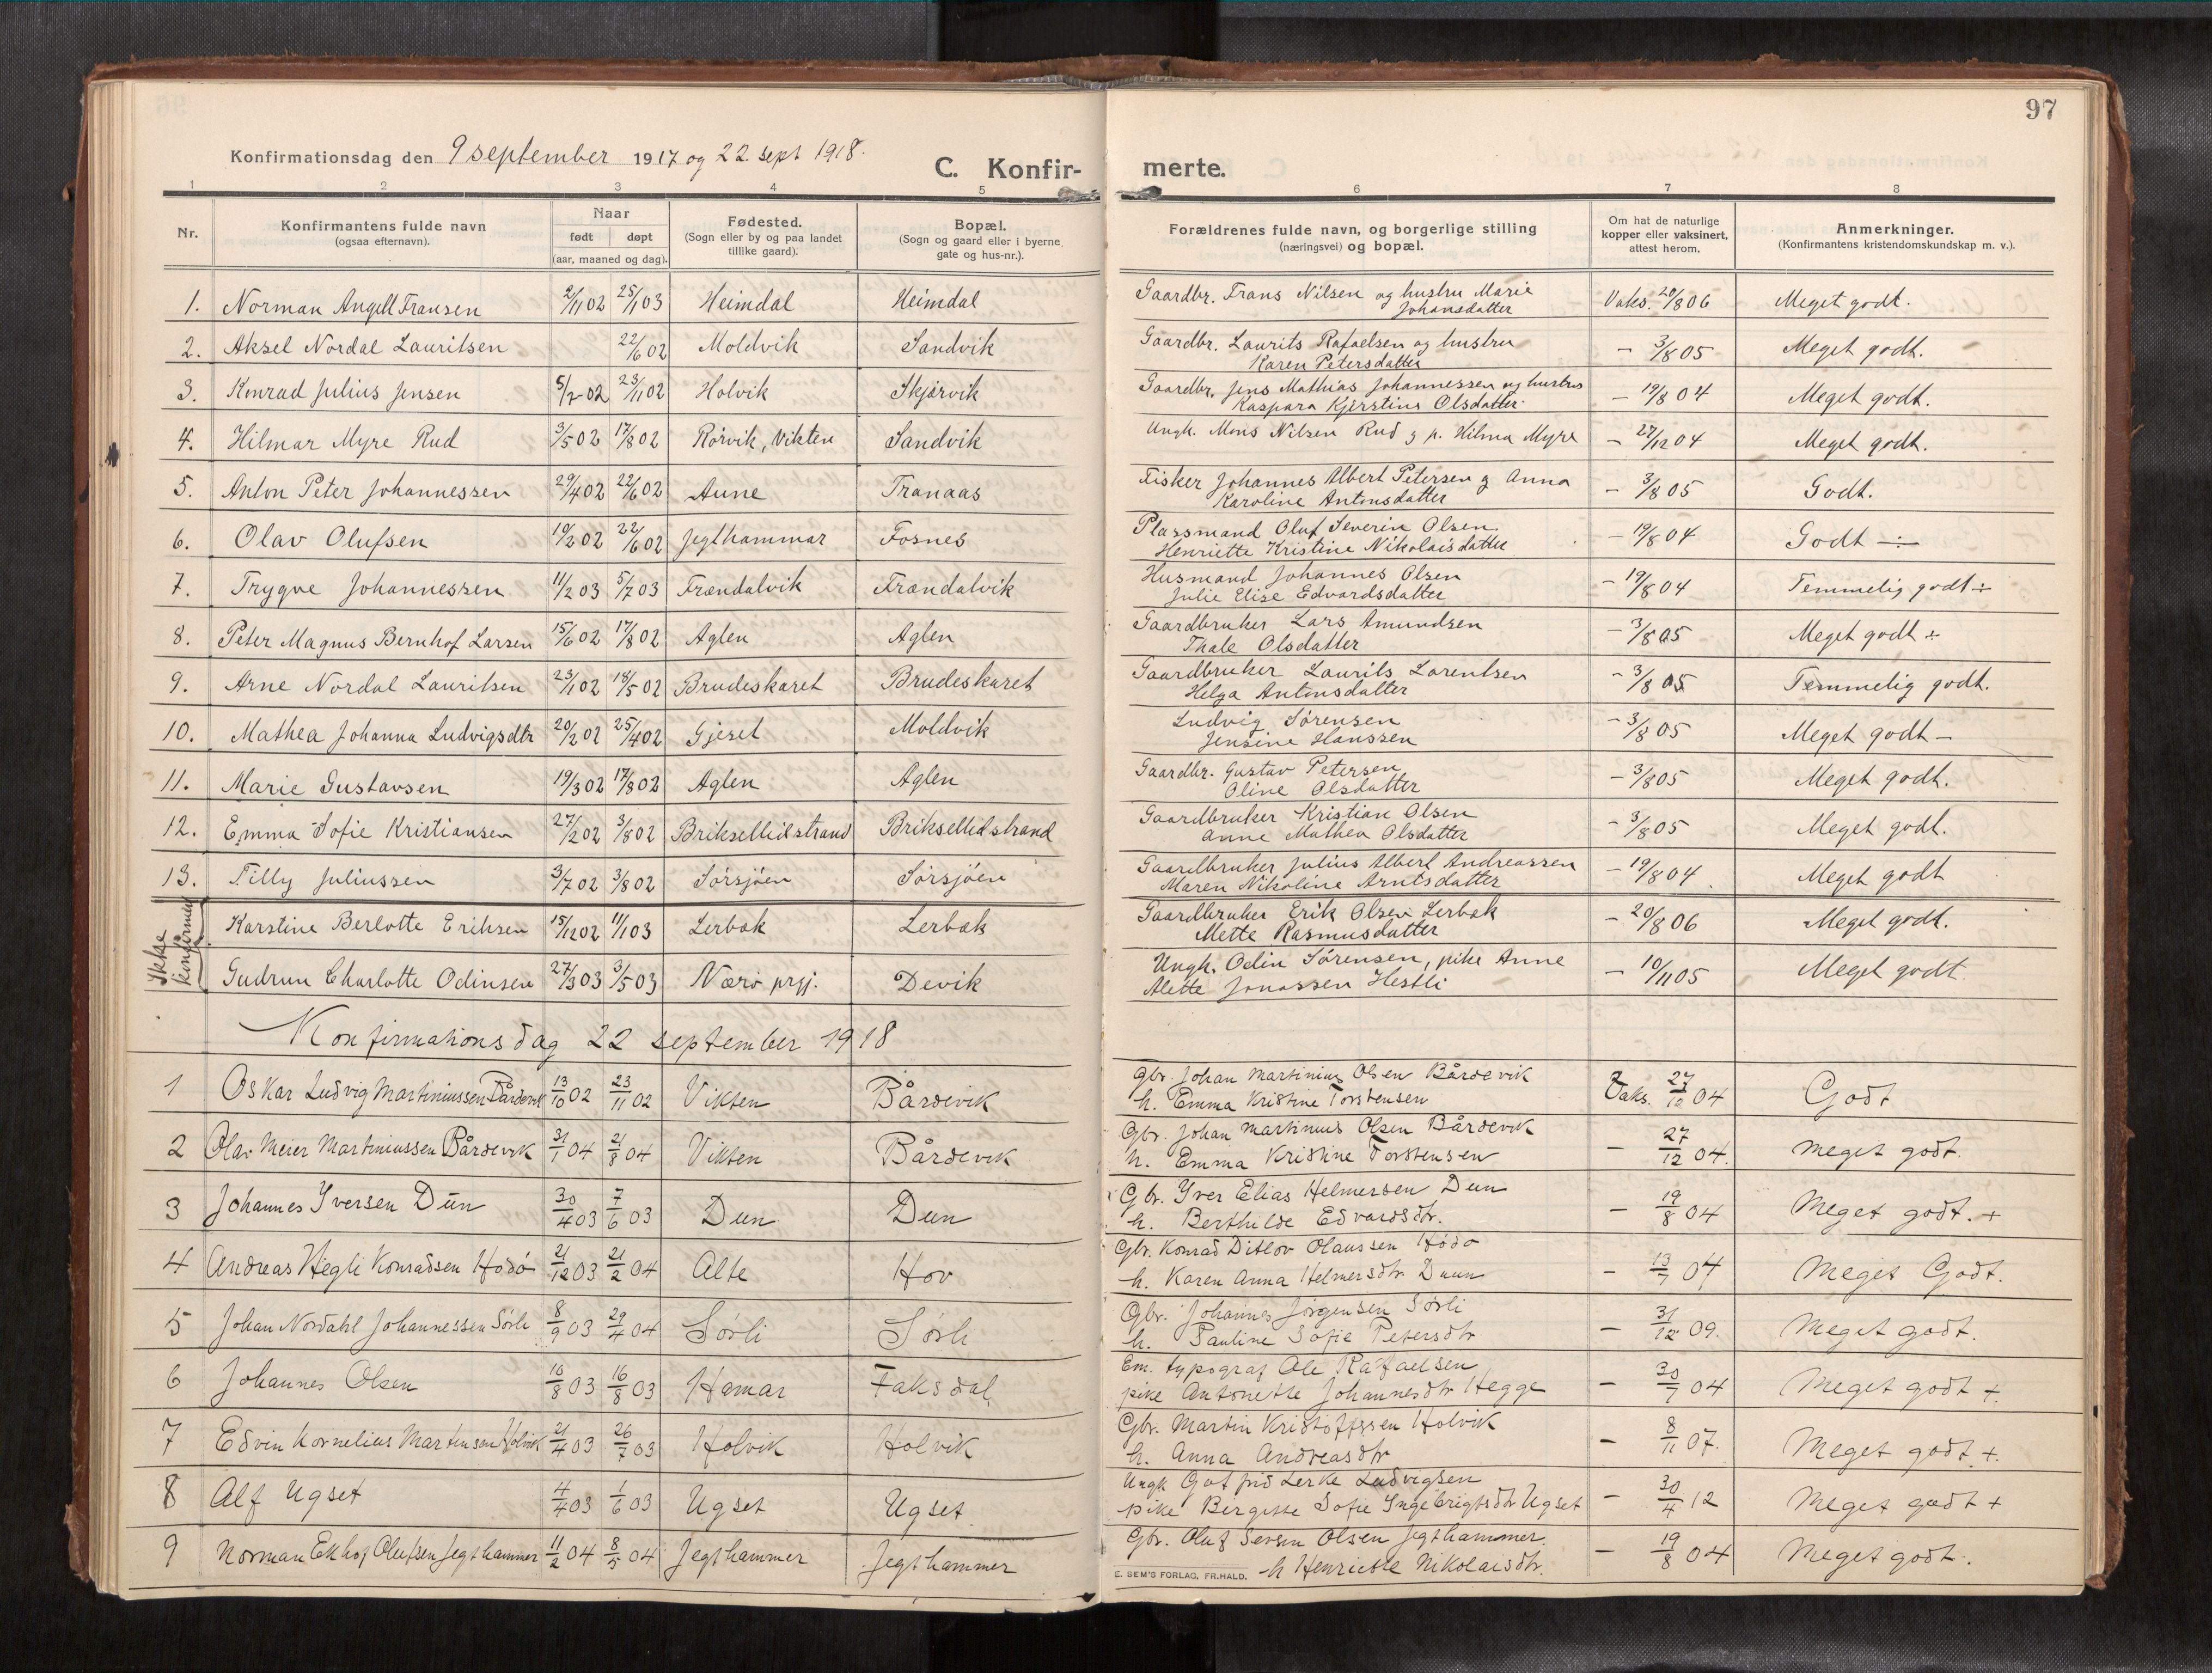 97
Konfirmationsdag den 9 september 1917 og 22. sept 1918.
C. Konfir- merte.
1 2 3 4 5 6 7 8
Nr. Konfirmantens fulde navn (ogsaa efternavn). Naar født døpt (aar, maaned og dag). Fødested. (Sogn eller by og paa landet tillike gaard). Bopæl. (Sogn og gaard eller i byerne, gate og hus-nr.). Forældrenes fulde navn, og borgerlige stilling (næringsvei) og bopæl. Om hat de naturlige kopper eller vaksinert, attest herom. Anmerkninger. (Konfirmantens kristendomskundskap m. v.).
1. Norman Angell Fransen 2/11 02 25/1 03 Heimdal Heimdal Gaardbr. Frans Nilsen og hustru Marie Johansdatter Vaks. 20/8 06 Meget godt.
2. Aksel Nordal Lauritsen 22/6 02 Moldvik Sandvik Gaardbr. Laurits Rafaelsen og hustru Karen Petersdatter – 3/8 05 Meget godt.
3. Konrad Julius Jensen 5/7 02 23/11 02 Holvik Skjærvik Gaardbr. Jens Mathias Johannessen og hustru Kaspara Kjerstine Olsdatter – 19/8 04 Meget godt.
4. Hilmar Myre Rud 3/5 02 17/8 02 Rørvik, Vikten Sandvik Ungk. Mons Nilsen Rud og p. Hilma Myre – 27/12 04 Meget godt.
5. Anton Peter Johannessen 29/4 02 22/6 02 Aune Tranaas Fisker Johannes Albert Petersen og Anna Karoline Antonsdatter – 3/8 05 Godt.
6. Olav Olufsen 10/2 02 22/6 02 Jegthammar Fosnes Plassmand Oluf Severin Olsen Henriette Kristine Nikolaisdatter – 19/8 04 Godt ÷
7. Trygve Johannessen 11/2 03 5/7 03 Frændalvik Frændalvik Husmand Johannes Olsen Julie Elise Edvardsdatter – 19/8 04 Temmelig godt ÷
8. Peter Magnus Bernhof Larsen 15/6 02 17/8 02 Aglen Aglen Gaardbruker Lars Amundsen Thale Olsdatter – 3/8 05 Meget godt ÷
9. Arne Nordal Lauritsen 23/1 02 18/5 02 Brudeskaret Brudeskaret Gaardbruker Laurits Lorentsen Helga Antonsdatter – 3/8 05 Temmelig godt.
10. Mathea Johanna Ludvigsdtr 20/2 02 25/4 02 Gjeset Moldvik Ludvig Sørensen Jensine Hanssen – 3/8 05 Meget godt –
11. Marie Gustavsen 19/3 02 17/8 02 Aglen Aglen Gaardbr. Gustav Petersen Oline Olsdatter – 3/8 05 Meget godt.
12. Emma Sofie Kristiansen 27/2 02 3/8 02 Briksellidstrand Briksellidstrand Gaardbruker Kristian Olsen Anne Mathea Olsdatter – 3/8 05 Meget godt.
13. Tilly Juliussen 3/7 02 3/8 02 Sørsjøen Sørsjøen Gaardbruker Julius Albert Andreassen Maren Nikoline Arntsdatter – 19/8 04 Meget godt
Ikke konfirmert
Karstine Berlotte Eriksen 15/12 02 11/1 03 Lerbak Lerbak Gaardbruker Erik Olsen Lerbak Mette Rasmusdatter – 20/8 06 Meget godt.
Gudrun Charlotte Odinsen 27/3 03 3/5 03 Nærø prgj. Devik Ungk. Odin Sørensen, pike Anne Alette Jonassen Hestli – 10/11 05 Meget godt
Konfirmationsdag 22 september 1918
1 Oskar Ludvig Martiniussen Bårdevik 13/10 02 23/11 02 Vikten Bårdevik Gbr. Johan Martinius Olsen Bårdevik h. Emma Kristine Torstensen Vaks. 27/12 04 Godt
2 Olav Meier Martiniussen Bårdevik 31/1 04 21/8 04 Vikten Bårdevik Gbr. Johan Martinius Olsen Bårdevik h. Emma Kristine Torstensen – 27/12 04. Meget godt.
3 Johannes Iversen Dun 30/4 03 7/6 03 Dun Dun Gbr. Iver Elias Helmersen Dun h. Berthilde Edvardsdtr. – 19/8 04 Meget godt. +
4 Andreas Hegli Konradsen Hodø 21/12 03 21/2 04 Alte Hov Gbr. Konrad Ditlov Olaussen Hodø h. Karen Anna Helmersdtr Duun – 13/7 04 Meget Godt.
5 Johan Nordahl Johannessen Sørli 8/9 03 29/4 04 Sørli Sørli Gbr. Johannes Jørgensen Sørli h. Pauline Sofie Petersdtr – 31/12 09. Meget godt.
6 Johannes Olsen 16/8 03 16/8 03 Hamar Faksdal Em. typograf Ole Rafaelsen pike Antonette Johannesdtr Hegge – 30/7 04 Meget godt +
7 Edvin Kornelius Martinsen Holvik 21/4 03 26/7 03 Holvik Holvik Gbr. Martin Kristoffersen Holvik h. Anna Andreasdtr – 8/11 07. Meget godt +
8 Alf Ugset 4/4 03 1/6 03 Ugset Ugset Ungk Gotfrid Lerke Ludvigsen pike Birgitte Sofie Ingebrigtsdtr Ugset – 30/4 12 Meget godt +
9 Norman Ekhof Olufsen Jegthammer 11/2 04 8/5 04 Jegthammer Jegthammer Gbr. Oluf Sevrin Olsen Jegthammer. h Henriette Nikolaisdtr. – 19/8 04 Meget godt.
E. SEM'S FORLAG, FR.HALD.